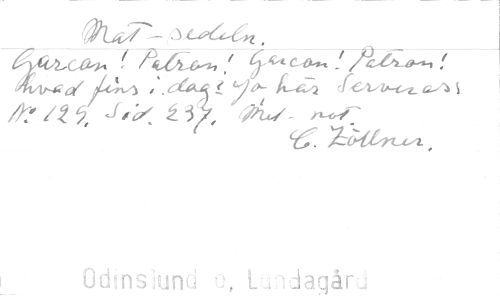 Mat-sedeln.
Garcon! Patron! Garcon! Patron!
hvad fins i dag? jo här serveras
No 129. Sid. 237. Med not.
C. Zöllner.
Odinslund o, Lundagård